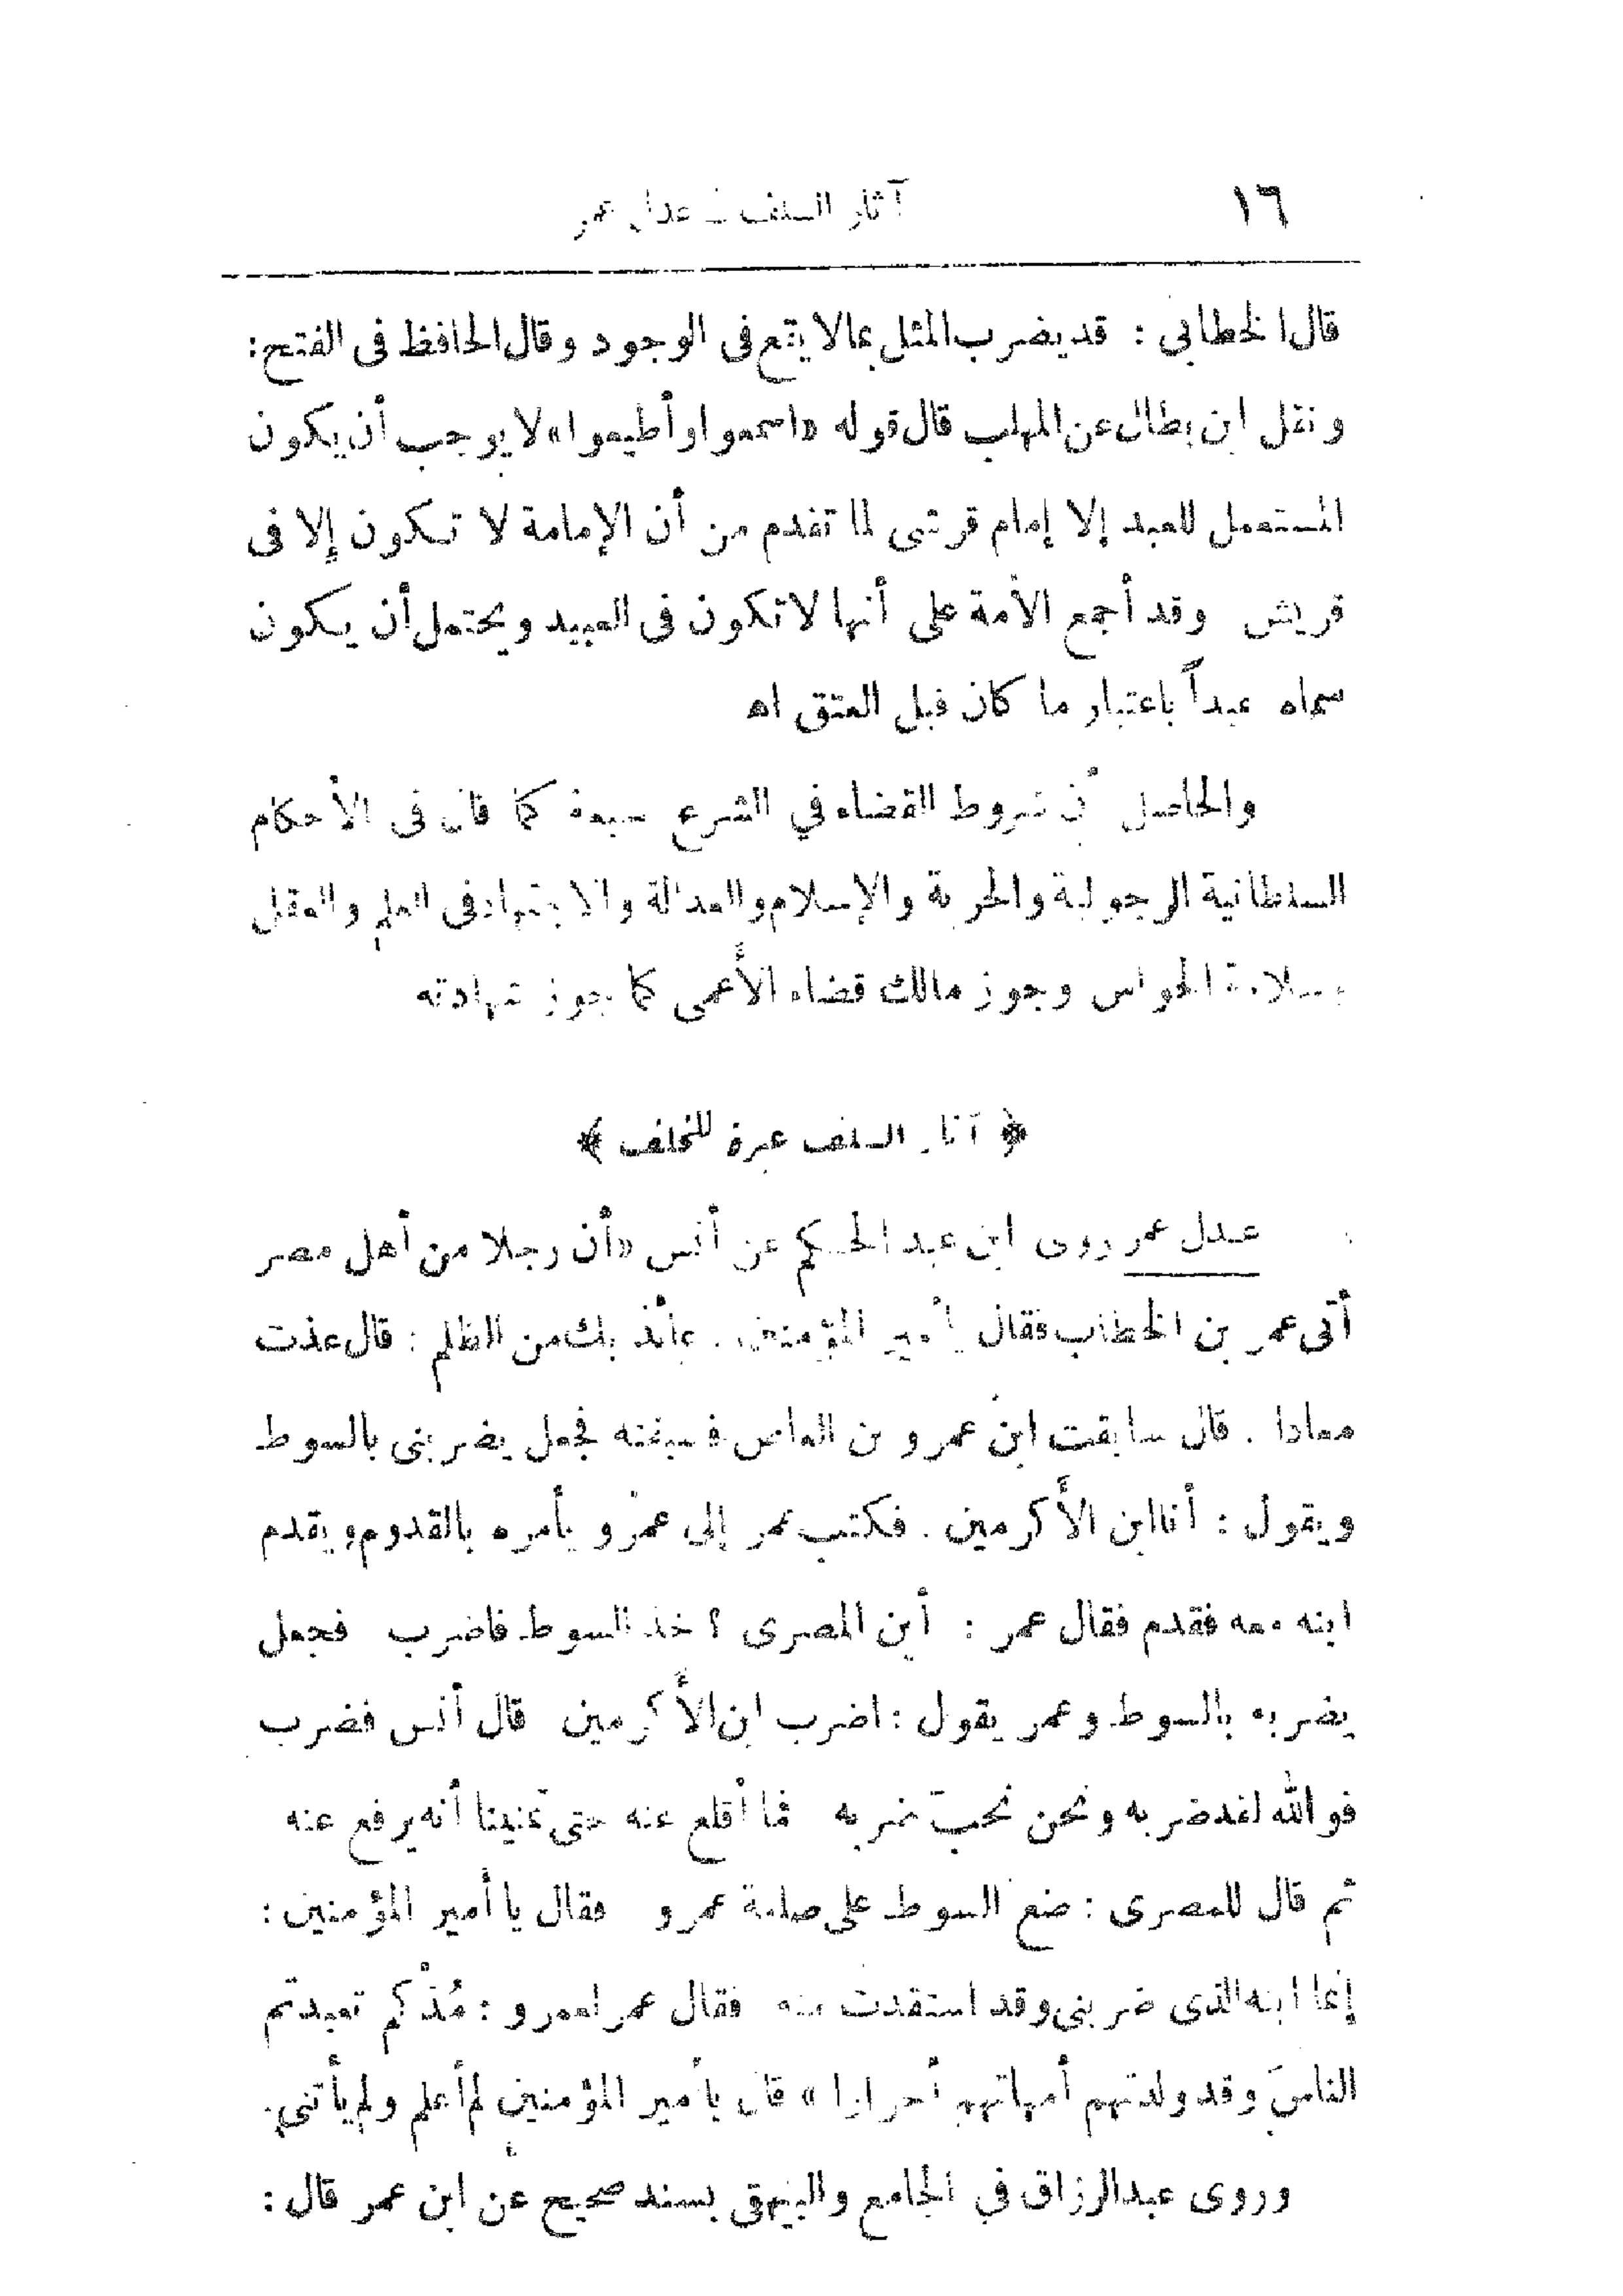 ١٦
آثار السلف – عدل عمر
قال الخطابي : قد يضرب المثل بما لا يقع فى الوجود وقال الحافظ فى الفتح :
ونقل ابن بطال عن المهلب قال قوله «اسمعوا وأطيعوا» لا يوجب أن يكون
المستعمل للعبد إلا إمام قرشى لما تقدم من أن الإمامة لا تكون إلا فى
قريش وقد أجمع الأمة على أنها لا تكون فى العبيد ويحتمل أن يكون
سماه عبداً باعتبار ما كان قبل العتق اه
والحاصل أن شروط القضاء في الشرع سبعة كما قال فى الأحكام
السلطانية الرجولية والحرية والإسلام والعدالة والاجتهاد فى العلم والعقل
وسلامة الحواس وجوز مالك قضاء الأعمى كما يجوز شهادته
﴿ آثار السلف عبرة للخلف ﴾
عدل عمر روى ابن عبد الحكم عن أنس «أن رجلا من أهل مصر
أتى عمر بن الخطاب فقال يا أمير المؤمنين . عائذ بك من الظلم : قال عذت
معاذا . قال سابقت ابن عمرو بن العاص فسبقته فجعل يضربنى بالسوط
ويقول : أنا ابن الأكرمين . فكتب عمر إلى عمرو يأمره بالقدوم ويقدم
ابنه معه فقدم فقال عمر : أين المصرى ؟ خذ السوط فاضرب فجعل
يضربه بالسوط وعمر يقول : اضرب ابن الأكرمين قال أنس فضرب
فوالله لقد ضربه ونحن نحب ضربه فما أقلع عنه حتى تمنينا أنه يرفع عنه
ثم قال للمصرى : ضع السوط على صلعة عمرو فقال يا أمير المؤمنين :
إنما ابنه الذى ضربنى وقد استقدت منه فقال عمر لعمرو : مُذْ كم تعبدتم
الناس وقد ولدتهم أمهاتهم أحرارا » قال يا أمير المؤمنين لم أعلم ولم يأتنى
وروى عبد الرزاق في الجامع والبيهقى بسند صحيح عن ابن عمر قال :